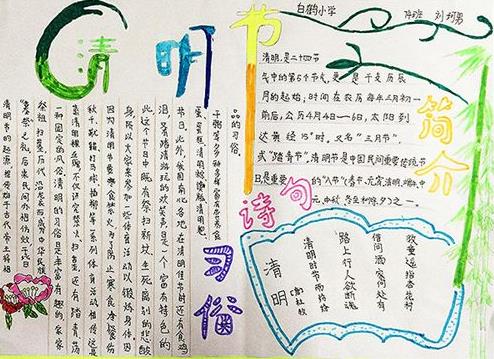 白鹤小学 刘柯男
清明节
简介
清明,是二十四
气中的第5个节气,更是干支历辰
月的起始;时间在农历每年三月初一
前后,公历4月4日—6日,太阳到
达黄经15°时。又名“三月节”。
或“踏青节”。清明节是中国民间重要传统节
日,是重要的“八节”(春节、元宵、清明、端午、中
元、中秋、冬至和除夕)之一。
诗句
清明
(唐)杜牧
清明时节雨纷纷
路上行人欲断魂
借问酒家何处有
牧童遥指杏花村
习俗
清明节的起源,据传始于古代帝王将相
“墓祭”之礼,后来民间亦相仿效,于此日
祭祖扫墓,历代沿袭而成为中华民族
一种固定的风俗。清明的习俗是丰富有趣的,
讲究禁火、扫墓,还有踏青、荡
秋千、蹴鞠、打马球、插柳等一系列体育活动。相传这是
因为清明节要寒食禁火,为了防止寒食冷餐伤
身,所以大家来参加一些体育活动,以锻炼身体。因
此,这个节日中既有祭扫新坟,生死离别的悲酸
泪,又有踏青游玩的欢笑声,是一个富有特色的
节日。此外,我国南北各地在清明佳节时还有食鸡
蛋、蛋糕、清明
子粥等多种多样富有营养食
品的习俗。